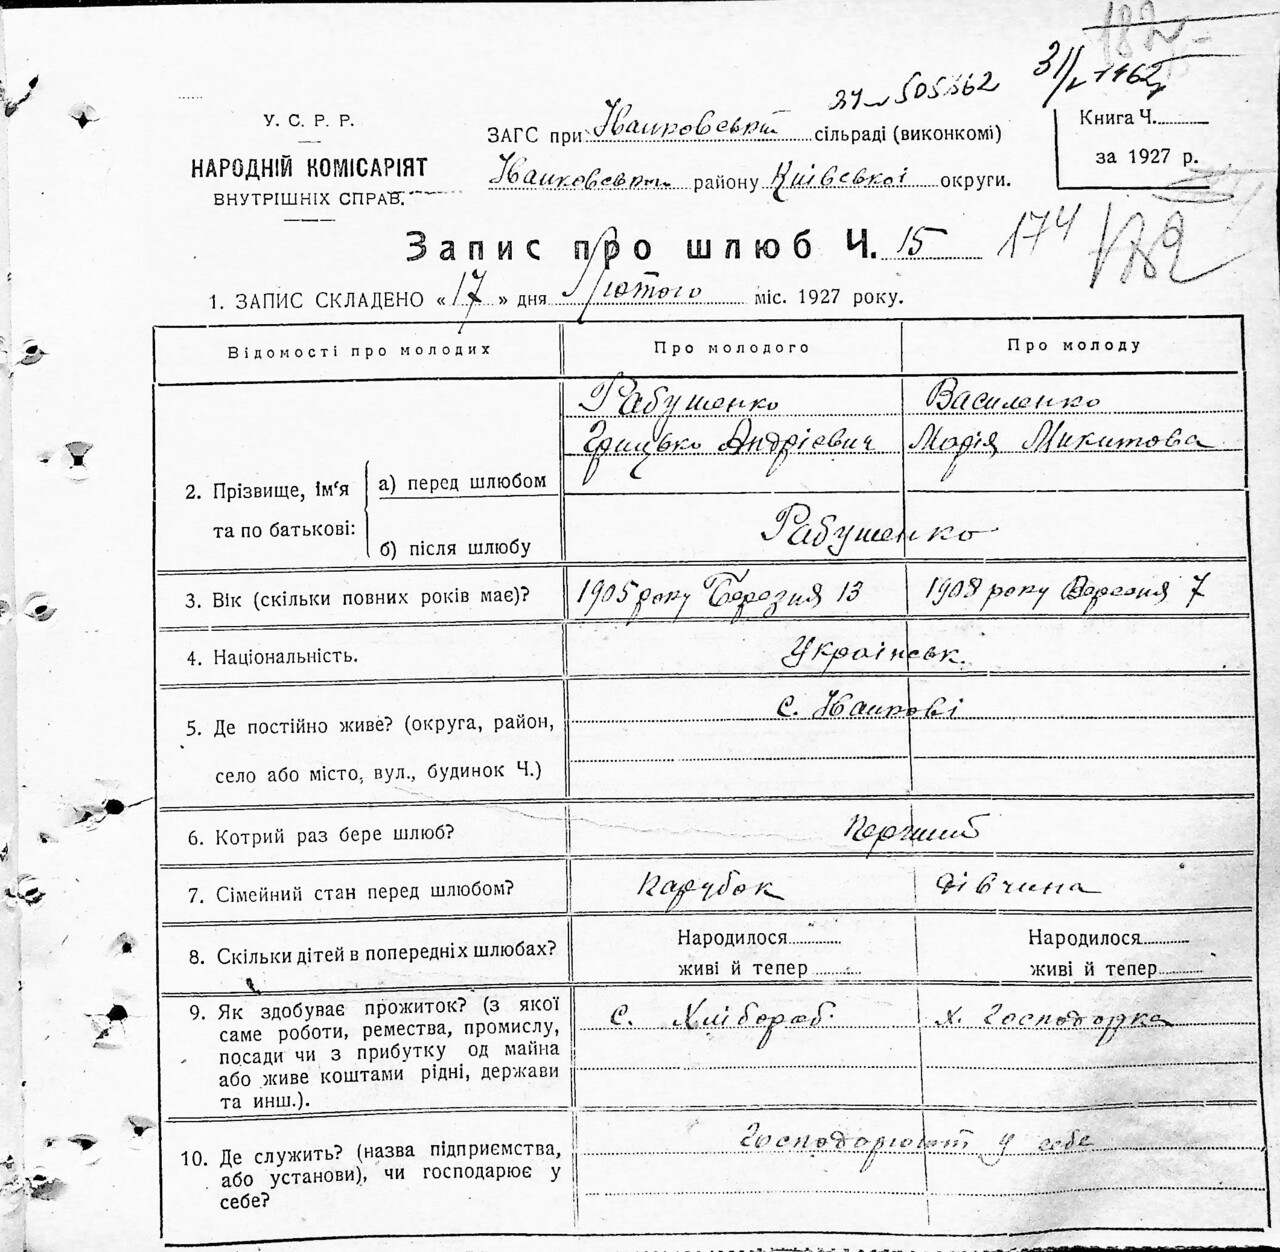 182
31/I 1962
27 505862
У. С. Р. Р.
НАРОДНІЙ КОМІСАРІЯТ
ВНУТРІШНІХ СПРАВ.
ЗАГС при Іванковській сільраді (виконкомі)
Іванковськ. району Київської округи.
Книга Ч.
за 1927 р.
Запис про шлюб Ч. 15
174
182
1. ЗАПИС СКЛАДЕНО «17» дня Лютого міс. 1927 року.
Відомості про молодих
Про молодого
Про молоду
2. Прізвище, ім‘я та по батькові:
а) перед шлюбом
Рабушенко
Грицько Андрієвич
Василенко
Марія Микитова
б) після шлюбу
Рабушенко
3. Вік (скільки повних років має)?
1905 року Березня 13
1908 року Вересня 7
4. Національність.
Українськ.
5. Де постійно живе? (округа, район,
село або місто, вул., будинок Ч.)
с. Іванкові
6. Котрий раз бере шлюб?
Перший
7. Сімейний стан перед шлюбом?
Парубок
Дівчина
8. Скільки дітей в попередніх шлюбах?
Народилося
живі й тепер
Народилося
живі й тепер
9. Як здобуває прожиток? (з якої
саме роботи, ремества, промислу,
посади чи з прибутку од майна
або живе коштами рідні, держави
та инш.).
с. Хлібороб.
х. Господарка
10. Де служить? (назва підприємства,
або установи), чи господарює у
себе?
Господарюют у себе